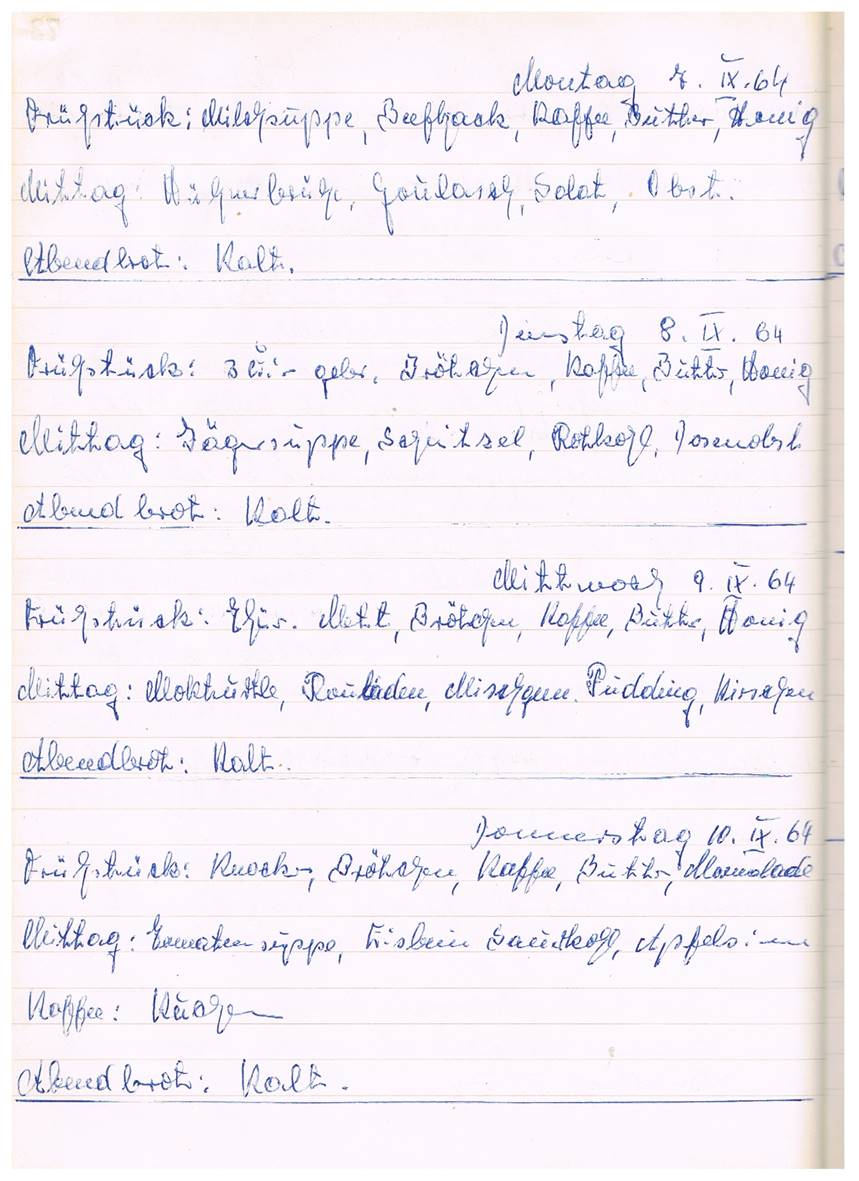 Montag 7. IX. 64
Frühstück: Milchsuppe, Beefhack, Kaffee, Butter, Honig
Mittag: Hühnerbrühe, Goulasch, Salat, Obst.
Abendbrot: Kalt.
Dienstag 8. IX. 64
Frühstück: 3 Eier gebr. Brötchen, Kaffee, Butter, Honig
Mittag: Jägersuppe, Schnitzel, Rotkohl, Dosenobst
Abendbrot: Kalt.
Mittwoch 9. IX. 64
Frühstück: Thür. Mett, Brötchen, Kaffee, Butter, Honig
Mittag: Mokturtle, Rouladen, Mischgem. Pudding, Kirschen
Abendbrot: Kalt.
Donnerstag 10. IX. 64
Frühstück: Knacker, Brötchen, Kaffee, Butter, Marmelade
Mittag: Tomatensuppe, Eisbein Sauerkohl, Apfelsinen
Kaffee: Kuchen
Abendbrot: Kalt.